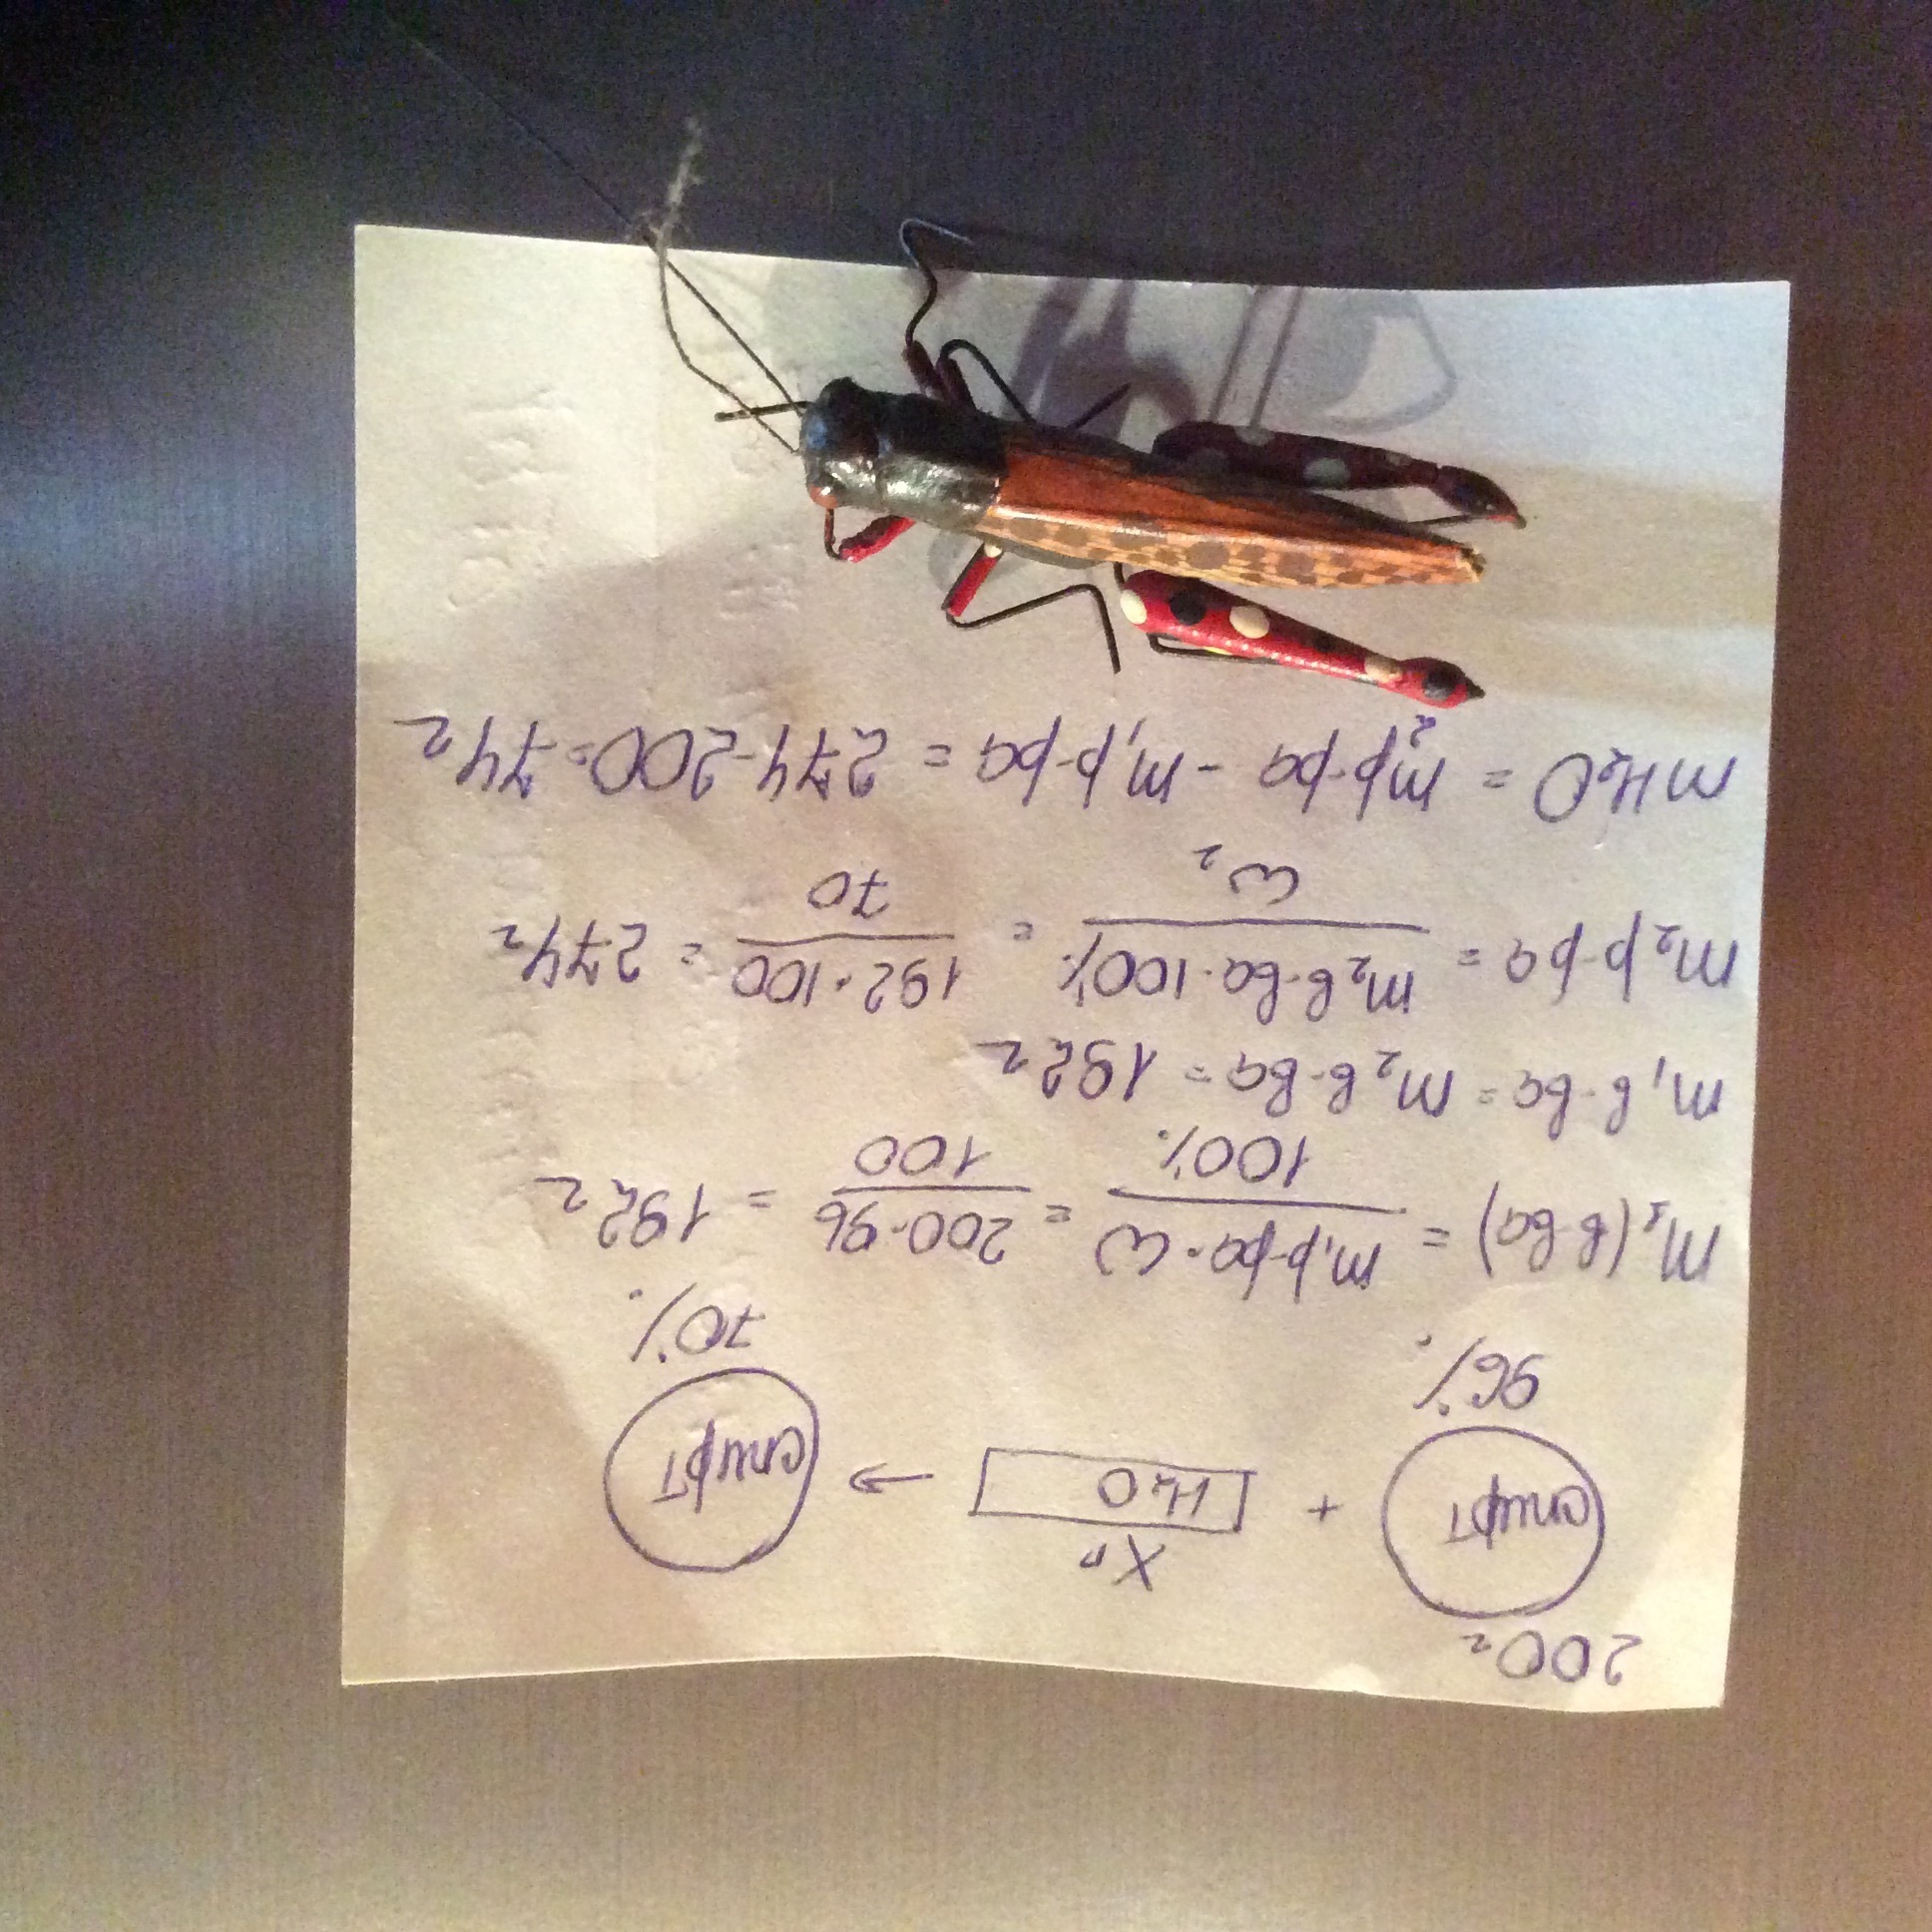 200г
спирт + H₂O → спирт
Xг
96% 70%
m₁(в-ва) = m₁р-ра·ω / 100% = 200·96 / 100 = 192г
m₁в-ва = m₂в-ва = 192г
m₂р-ра = m₂в-ва·100% / ω₂ = 192·100 / 70 = 274г
mH₂O = m₂р-ра - m₁р-ра = 274-200=74г